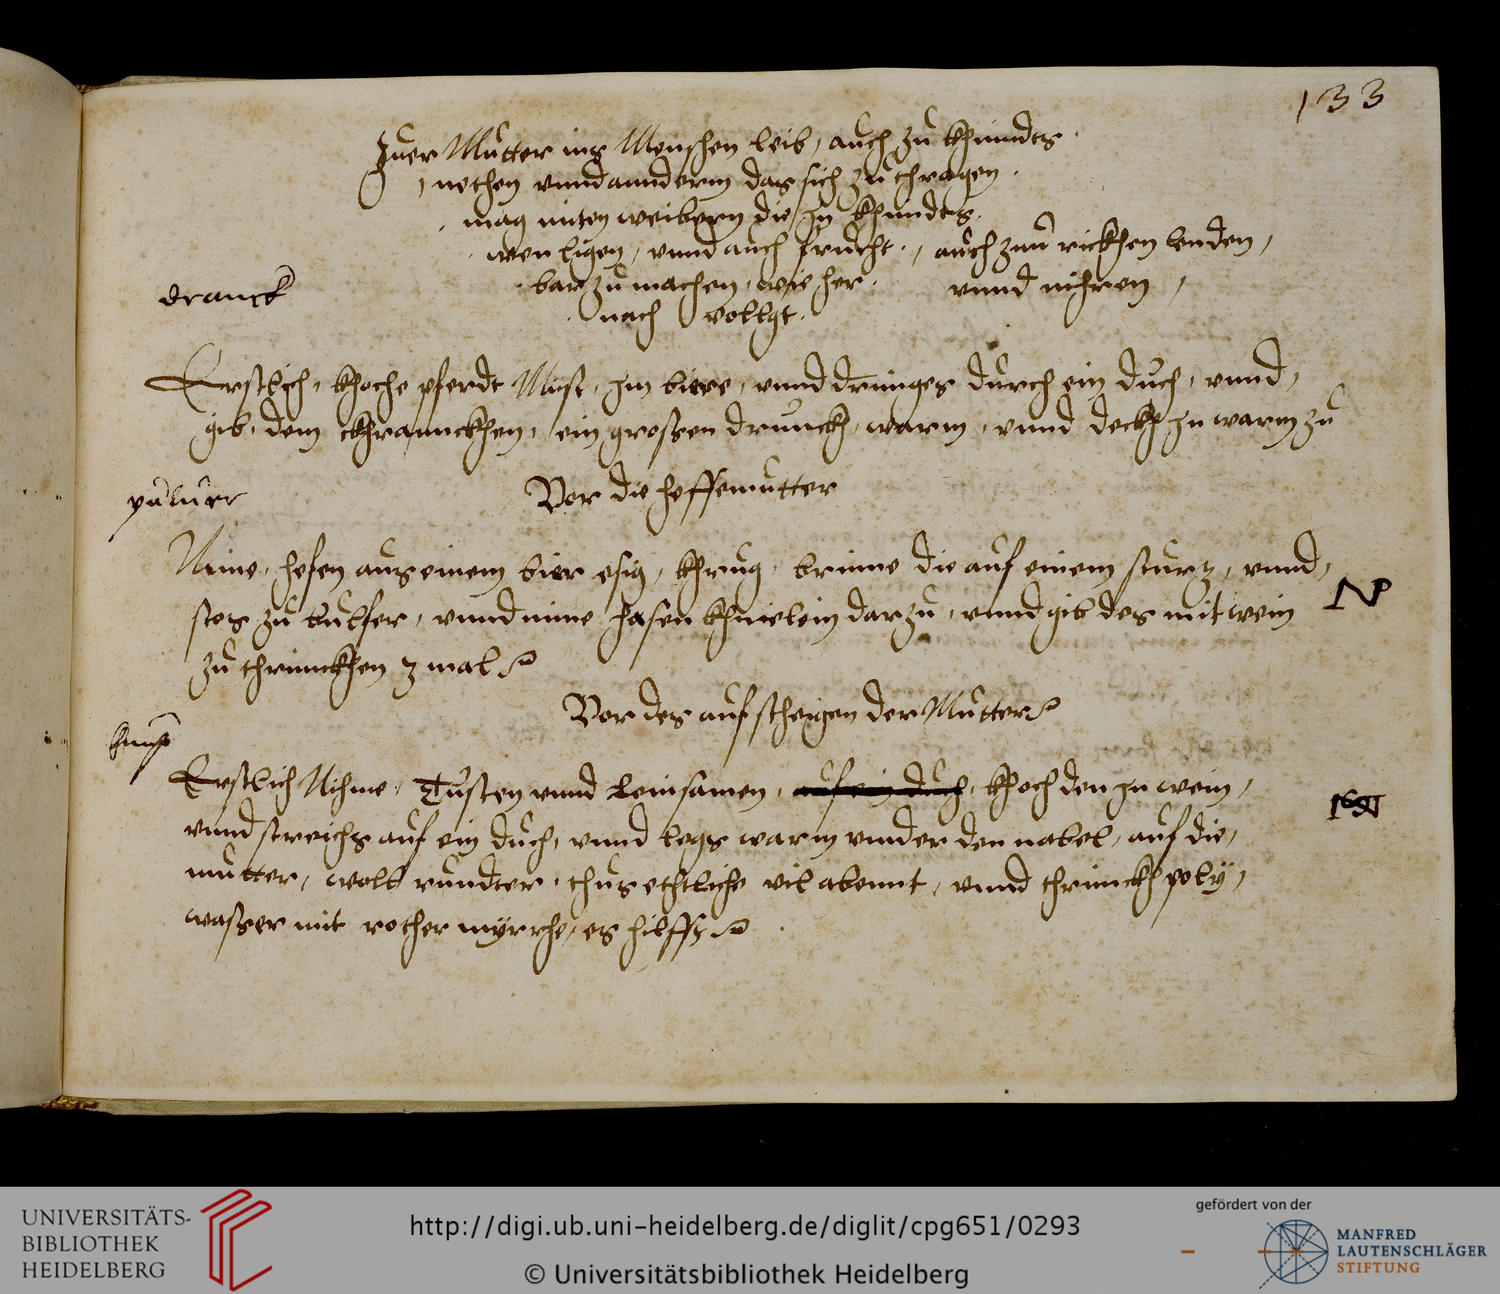 133
Zuer Mutter ins Menschen leib, auch zu khinndts
nethen vnnd annderm das sich zu thragen
mag mit en weibern die In khinndts
wen ligen, vnnd auch frucht, auch zuu rickhen lenden,
bar zu machen, wie her vnnd nihren,
nach vollgt.
dranck
Erstlich, khoche pferdt Mist, Im biere, vnnd dringes durch ein duch, vnnd,
gib, dem khrannckhen, ein grossen drunckh, warm, vnnd deckh In warm zu
puluer
Vor die heffemutter
Nime, hefen aus einem bier esig, khrug, brinne die auf einem sturz, vnnd,
stos zu bulfer, vnnd nime hasen khnielein darzu, vnnd gib des mit wein
N
zu thrinnckhen 3 mal
Vor des aufstheigen der Mutter
Erstlich Nihme, Tusten vnnd leinsamen, auf ein duch, khoch den In wein,
vnnd streichs auf ein duch, vnnd legs warm vnnder den nabel, auf die,
mutter, woll rundter, thus ethliche vil abennt, vnnd thrinckh poly,
wasser mit rother myrrhe, es hilfft
UNIVERSITÄTS-
BIBLIOTHEK
HEIDELBERG
http://digi.ub.uni-heidelberg.de/diglit/cpg651/0293
© Universitätsbibliothek Heidelberg
gefördert von der
MANFRED
LAUTENSCHLÄGER
STIFTUNG